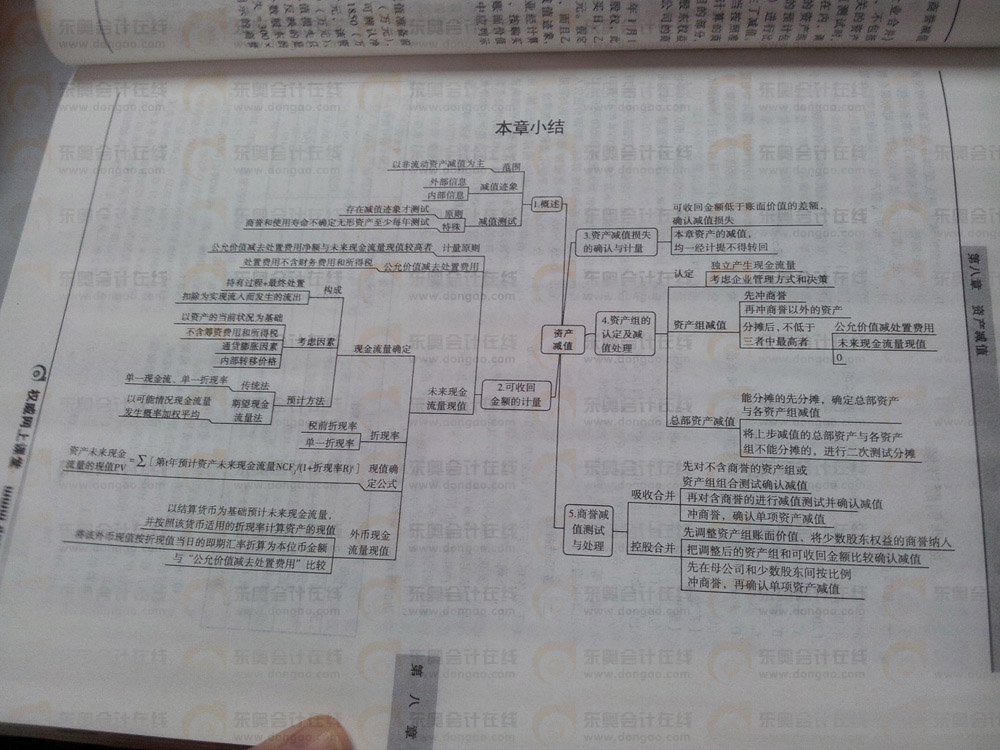 本章小结
以非流动资产减值为主
范围
外部信息
内部信息
减值迹象
存在减值迹象才测试
原则
商誉和使用寿命不确定无形资产至少每年测试
特殊
减值测试
1.概述
公允价值减去处置费用净额与未来现金流量现值较高者
计量原则
处置费用不含财务费用和所得税
公允价值减去处置费用
持有过程+最终处置
扣除为实现流入而发生的流出
构成
以资产的当前状况为基础
不含筹资费用和所得税
通货膨胀因素
内部转移价格
考虑因素
现金流量确定
单一现金流、单一折现率
传统法
以可能情况现金流量
发生概率加权平均
期望现金
流量法
预计方法
税前折现率
单一折现率
折现率
未来现金
流量现值
2.可收回
金额的计量
资产未来现金
流量的现值PV
=∑[第t年预计资产未来现金流量NCFt/(1+折现率R)t]
现值确
定公式
以结算货币为基础预计未来现金流量，
并按照该货币适用的折现率计算资产的现值
将该外币现值按折现值当日的即期汇率折算为本位币金额
与“公允价值减去处置费用”比较
外币现金
流量现值
资产
减值
3.资产减值损失
的确认与计量
可收回金额低于账面价值的差额，
确认减值损失
本章资产的减值，
均一经计提不得转回
4.资产组的
认定及减
值处理
认定
独立产生现金流量
考虑企业管理方式和决策
资产组减值
先冲商誉
再冲商誉以外的资产
分摊后，不低于
三者中最高者
公允价值减处置费用
未来现金流量现值
0
总部资产减值
能分摊的先分摊，确定总部资产
与各资产组减值
将上步减值的总部资产与各资产
组不能分摊的，进行二次测试分摊
5.商誉减
值测试
与处理
吸收合并
先对不含商誉的资产组或
资产组组合测试确认减值
再对含商誉的进行减值测试并确认减值
冲商誉，确认单项资产减值
控股合并
先调整资产组账面价值，将少数股东权益的商誉纳人
把调整后的资产组和可收回金额比较确认减值
先在母公司和少数股东间按比例
冲商誉，再确认单项资产减值
第八章 资产减值
权威网上课堂
第八章
东奥会计在线
www.dongao.com